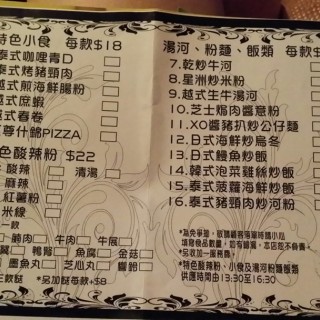 特色小食 每款$18
泰式咖哩青口
泰式烤豬頸肉
越式煎海鮮腸粉
越式蔗蝦
越式春卷
至尊什錦PIZZA
特色酸辣粉 $22
酸辣 清湯
麻辣
紅薯粉
米線
一款
腩肉 牛肉 牛𦟌
鴨腎 魚腐 金菇
墨魚丸 芝心丸 響鈴
三款餸 *另加餸每款+$8
湯河、粉麵、飯類 每款$
7.乾炒牛河
8.星洲炒米粉
9.越式生牛湯河
10.芝士焗肉醬意粉
11.XO醬豬扒炒公仔麵
12.日式海鮮炒烏冬
13.日式鰻魚炒飯
14.韓式泡菜雞絲炒飯
15.泰式菠蘿海鮮炒飯
16.泰式豬頸肉炒河粉
*特色酸辣粉、小食及湯河粉麵飯類
供應時間由13:30至16:30